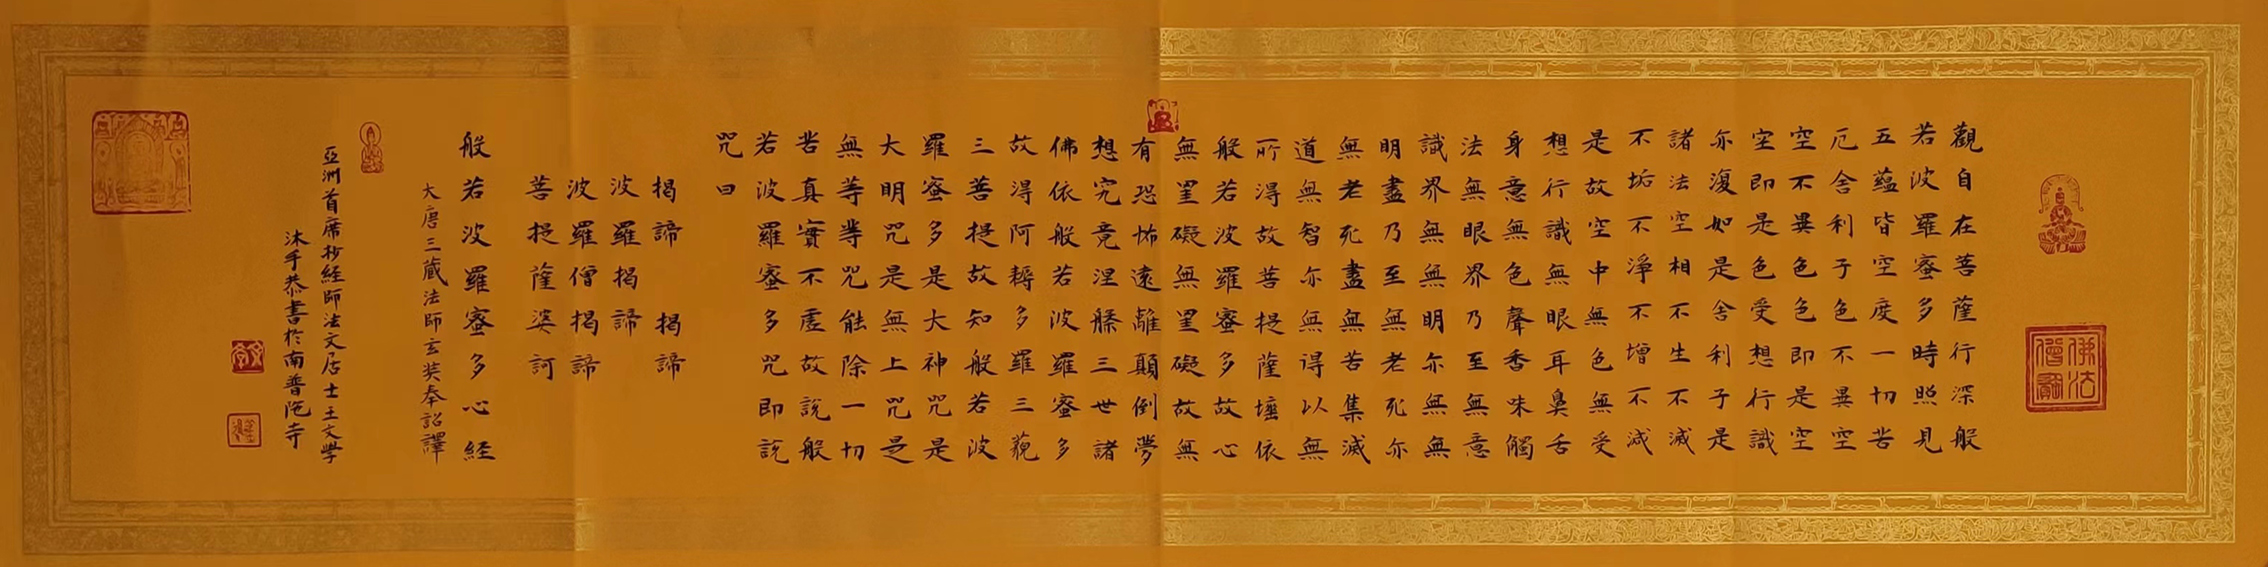 佛法僧寶
觀自在菩薩行深般
若波羅蜜多時照見
五蘊皆空度一切苦
厄舍利子色不異空
空不異色色即是空
空即是色受想行識
亦復如是舍利子是
諸法空相不生不滅
不垢不淨不增不減
是故空中無色無受
想行識無眼耳鼻舌
身意無色聲香味觸
法無眼界乃至無意
識界無無明亦無無
明盡乃至無老死亦
無老死盡無苦集滅
道無智亦無得以無
所得故菩提薩埵依
般若波羅蜜多故心
無罣礙無罣礙故無
有恐怖遠離顛倒夢
想究竟涅槃三世諸
佛依般若波羅蜜多
故得阿耨多羅三藐
三菩提故知般若波
羅蜜多是大神咒是
大明咒是無上咒是
無等等咒能除一切
苦真實不虛故說般
若波羅蜜多咒即說
咒曰
揭諦 揭諦
波羅揭諦
波羅僧揭諦
菩提薩婆訶
般若波羅蜜多心經
大唐三藏法師玄奘奉詔譯
亞洲首席抄經師法文居士王文學
沐手恭書於南普陀寺